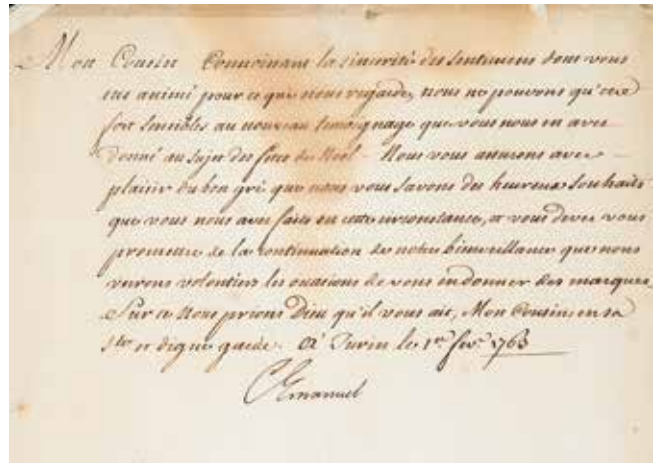 Mon Cousin Connoissant la sincerité des sentimens dont vous
etes animé pour ce qui nous regarde, nous ne pouvons qu'etre
fort sensibles au nouveau temoignage que vous nous en avez
donné au sujet des fetes de Noel. Nous vous assurons avec
plaisir du bon gré que nous vous savons des heureux souhaits
que vous nous avez faits en cette circonstance, et vous devez vous
promettre de la continuation de notre bienveillance que nous
verrons volontiers les occasions de vous en donner des marques.
Sur ce Nous prions Dieu qu'il vous ait, Mon Cousin en sa
Ste et digne garde. A Turin le 1er fevr 1763
CEmanuel